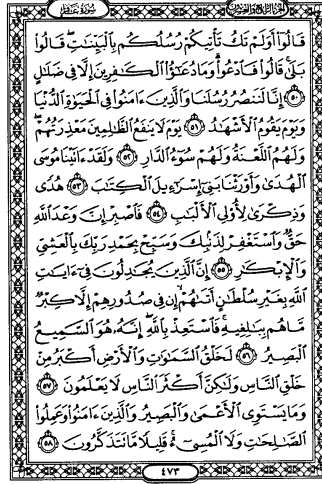 سُورَةُ غَافِرٍ
الجُزْءُ الرَّابِعُ وَالعِشْرُونَ
قَالُوٓا۟ أَوَلَمْ تَكُ تَأْتِيكُمْ رُسُلُكُم بِٱلْبَيِّنَـٰتِ ۖ قَالُوا۟
بَلَىٰ ۚ قَالُوا۟ فَٱدْعُوا۟ ۗ وَمَا دُعَـٰٓؤُا۟ ٱلْكَـٰفِرِينَ إِلَّا فِى ضَلَـٰلٍ
۝٥٠ إِنَّا لَنَنصُرُ رُسُلَنَا وَٱلَّذِينَ ءَامَنُوا۟ فِى ٱلْحَيَوٰةِ ٱلدُّنْيَا
وَيَوْمَ يَقُومُ ٱلْأَشْهَـٰدُ ۝٥١ يَوْمَ لَا يَنفَعُ ٱلظَّـٰلِمِينَ مَعْذِرَتُهُمْ ۖ
وَلَهُمُ ٱللَّعْنَةُ وَلَهُمْ سُوٓءُ ٱلدَّارِ ۝٥٢ وَلَقَدْ ءَاتَيْنَا مُوسَى
ٱلْهُدَىٰ وَأَوْرَثْنَا بَنِىٓ إِسْرَٰٓءِيلَ ٱلْكِتَـٰبَ ۝٥٣ هُدًى
وَذِكْرَىٰ لِأُو۟لِى ٱلْأَلْبَـٰبِ ۝٥٤ فَٱصْبِرْ إِنَّ وَعْدَ ٱللَّهِ
حَقٌّ وَٱسْتَغْفِرْ لِذَنۢبِكَ وَسَبِّحْ بِحَمْدِ رَبِّكَ بِٱلْعَشِىِّ
وَٱلْإِبْكَـٰرِ ۝٥٥ إِنَّ ٱلَّذِينَ يُجَـٰدِلُونَ فِىٓ ءَايَـٰتِ
ٱللَّهِ بِغَيْرِ سُلْطَـٰنٍ أَتَىٰهُمْ ۙ إِن فِى صُدُورِهِمْ إِلَّا كِبْرٌ
مَّا هُم بِبَـٰلِغِيهِ ۚ فَٱسْتَعِذْ بِٱللَّهِ ۖ إِنَّهُۥ هُوَ ٱلسَّمِيعُ
ٱلْبَصِيرُ ۝٥٦ لَخَلْقُ ٱلسَّمَـٰوَٰتِ وَٱلْأَرْضِ أَكْبَرُ مِنْ
خَلْقِ ٱلنَّاسِ وَلَـٰكِنَّ أَكْثَرَ ٱلنَّاسِ لَا يَعْلَمُونَ ۝٥٧
وَمَا يَسْتَوِى ٱلْأَعْمَىٰ وَٱلْبَصِيرُ وَٱلَّذِينَ ءَامَنُوا۟ وَعَمِلُوا۟
ٱلصَّـٰلِحَـٰتِ وَلَا ٱلْمُسِىٓءُ ۚ قَلِيلًا مَّا تَتَذَكَّرُونَ ۝٥٨
٤٧٣